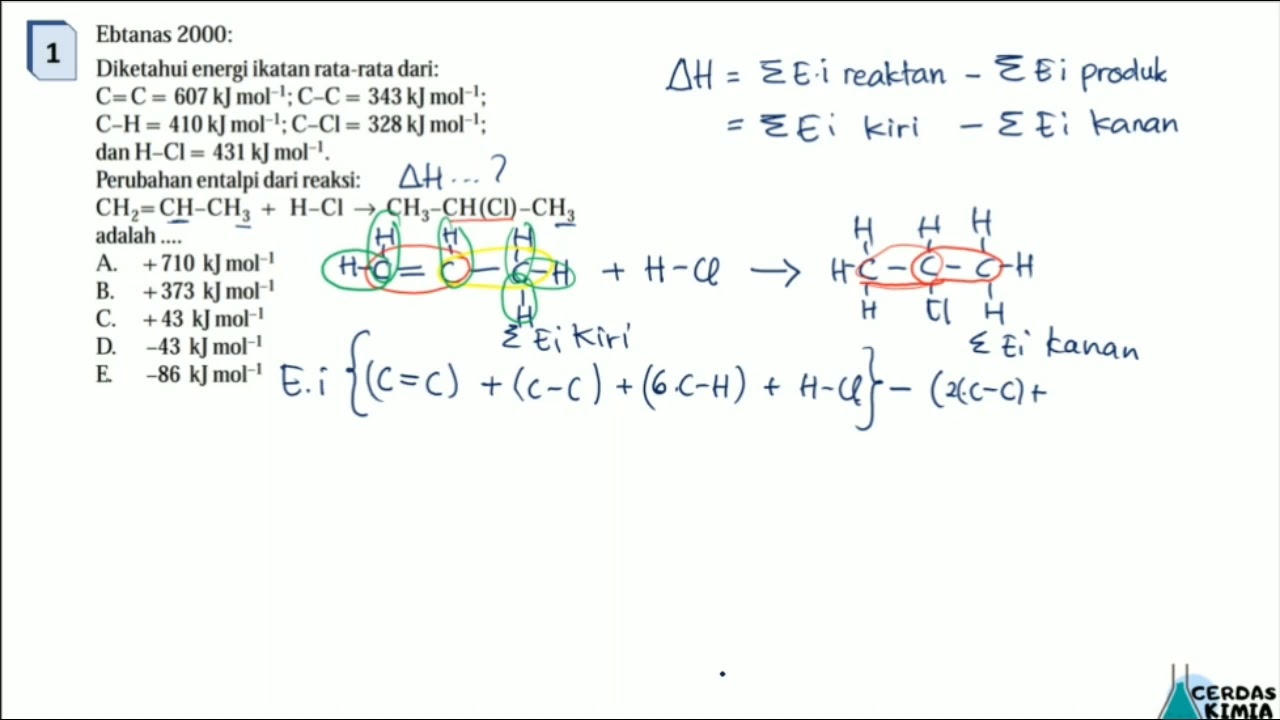 1
Ebtanas 2000:
Diketahui energi ikatan rata-rata dari:
C=C = 607 kJ mol⁻¹; C–C = 343 kJ mol⁻¹;
C–H = 410 kJ mol⁻¹; C–Cl = 328 kJ mol⁻¹;
dan H–Cl = 431 kJ mol⁻¹.
Perubahan entalpi dari reaksi:
CH₂=CH–CH₃ + H–Cl → CH₃–CH(Cl)–CH₃
adalah ....
A. +710 kJ mol⁻¹
B. +373 kJ mol⁻¹
C. +43 kJ mol⁻¹
D. –43 kJ mol⁻¹
E. –86 kJ mol⁻¹
ΔH = Σ E.i reaktan – Σ Ei produk
= Σ Ei kiri – Σ Ei kanan
ΔH ... ?
H H H H H H
H-C = C – C-H + H-Cl → H-C – C – C-H
H H Cl H
Σ Ei kiri Σ Ei kanan
E.i {(C=C) + (C-C) + (6.C-H) + H-Cl} – (2(.C-C) +
CERDAS
KIMIA